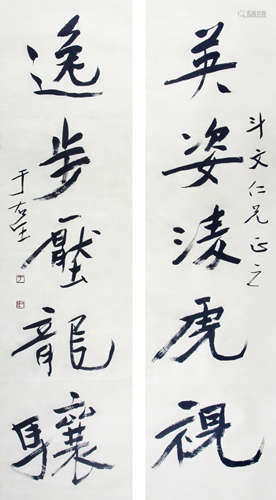 英姿淩虎視
斗文仁兄正之
逸步壓龍驤
于右任